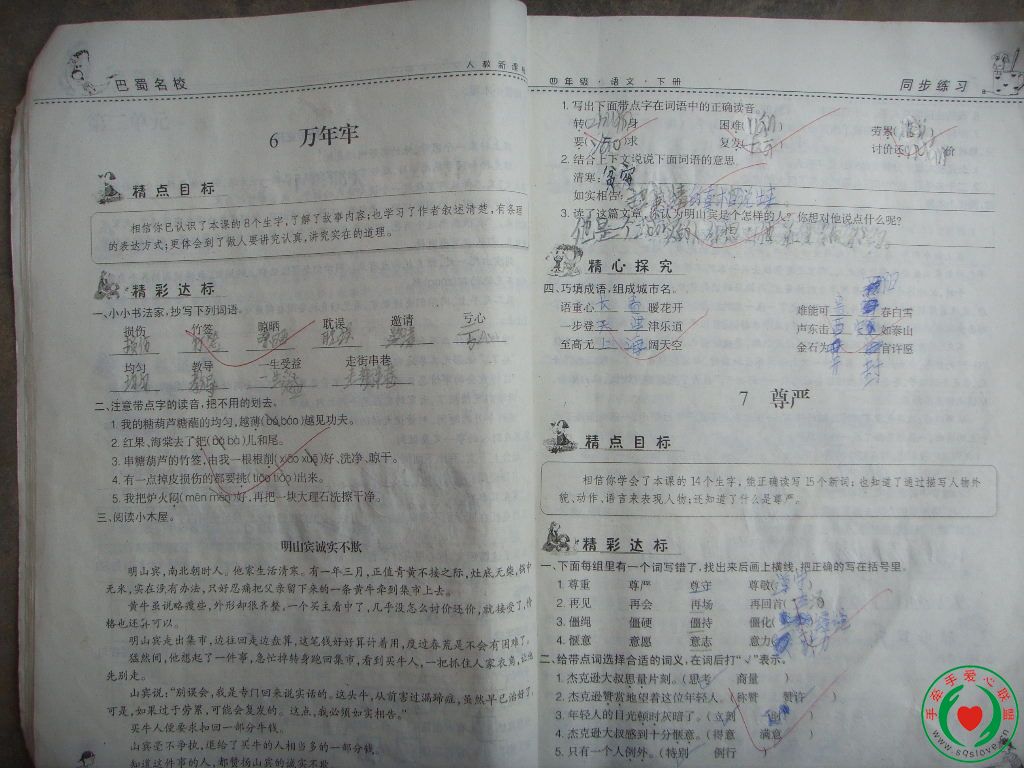 巴蜀名校
人教新课标
6 万年牢
精点目标
相信你已认识了本课的8个生字,了解了故事内容;也学习了作者叙述清楚,有条理
的表达方式;更体会到了做人要讲究认真,讲究实在的道理。
精彩达标
一、小小书法家,抄写下列词语。
损伤 竹签 晾晒 耽误 邀请 亏心
损伤 竹签 晾晒 耽误 邀请 亏心
均匀 教导 一生受益 走街串巷
均匀 教导 一生受益 走街串巷
二、注意带点字的读音,把不用的划去。
1. 我的糖葫芦糖蘸的均匀,越薄(bó báo)越见功夫。
2. 红果、海棠去了把(bǎ bà)儿和尾。
3. 串糖葫芦的竹签,由我一根根削(xiāo xuē)好、洗净、晾干。
4. 有一点掉皮损伤的都要挑(tiāo tiǎo)出来。
5. 我把炉火闷(mēn mèn)好,再把一块大理石洗擦干净。
三、阅读小木屋。
明山宾诚实不欺
明山宾,南北朝时人。他家生活清寒。有一年三月,正值青黄不接之际,灶底无柴,锅中
无米,实在没有办法,只好忍痛把父亲留下来的一条黄牛牵到集市上去。
黄牛虽说略瘦些,外形却很齐整。一个买主看中了,几乎没怎么讨价还价,就接受了,价
格也还可以。
明山宾走出集市,边往回走边盘算,这笔钱好好算计着用,度过春荒是不会有困难了。
猛然间,他想起了一件事,急忙掉转身跑回集市,看到买牛人,一把抓住人家衣角,让他
先别走。
山宾说:"别误会,我是专门回来说实话的。这头牛,从前害过漏蹄症,虽然早已治好了,
可是,如果过于劳累,可能会复发的。这点,我必须如实相告。"
买牛人便要求扣回一部分牛钱。
山宾毫不争执,退给了买牛的人相当多的一部分钱。
知道这件事的人,都赞扬山宾的诚实不欺
四年级·语文·下册
同步练习
1. 写出下面带点字在词语中的正确读音。
转( )身 困难( ) 劳累( )
要( )求 复发( ) 讨价还( )价
2. 结合上下文说说下面词语的意思。
清寒:
如实相告:
3. 读了这篇文章,你认为明山宾是个怎样的人?你想对他说点什么呢?
他是个
精心探究
四、巧填成语,组成城市名。
语重心长 春暖花开 难能可 春白雪
一步登天 津津乐道 声东击西 如泰山
至高无上 海阔天空 金石为开 封官许愿
7 尊严
精点目标
相信你学会了本课的14个生字,能正确读写15个新词;也知道了通过描写人物外
貌、动作、语言来表现人物;还知道了什么是尊严。
精彩达标
一、下面每组里有一个词写错了,找出来后画上横线,把正确的写在括号里。
1. 尊重 尊严 尊守 尊敬( )
2. 再见 再会 再场 再回首( )
3. 僵绳 僵硬 僵持 僵化( )
4. 惬意 意愿 意志 意力( )
二、给带点词选择合适的词义,在词后打"√"表示。
1. 杰克逊大叔思量片刻。(思考 商量 )
2. 杰克逊赞赏地望着这位年轻人。(称赞 赞许 )
3. 年轻人的目光顿时灰暗了。(立刻 )
4. 杰克逊大叔感到十分惬意。(得意 满意 )
5. 只有一个人例外。(特别 例行 )
手牵手爱心联盟
www.sqslove.cn